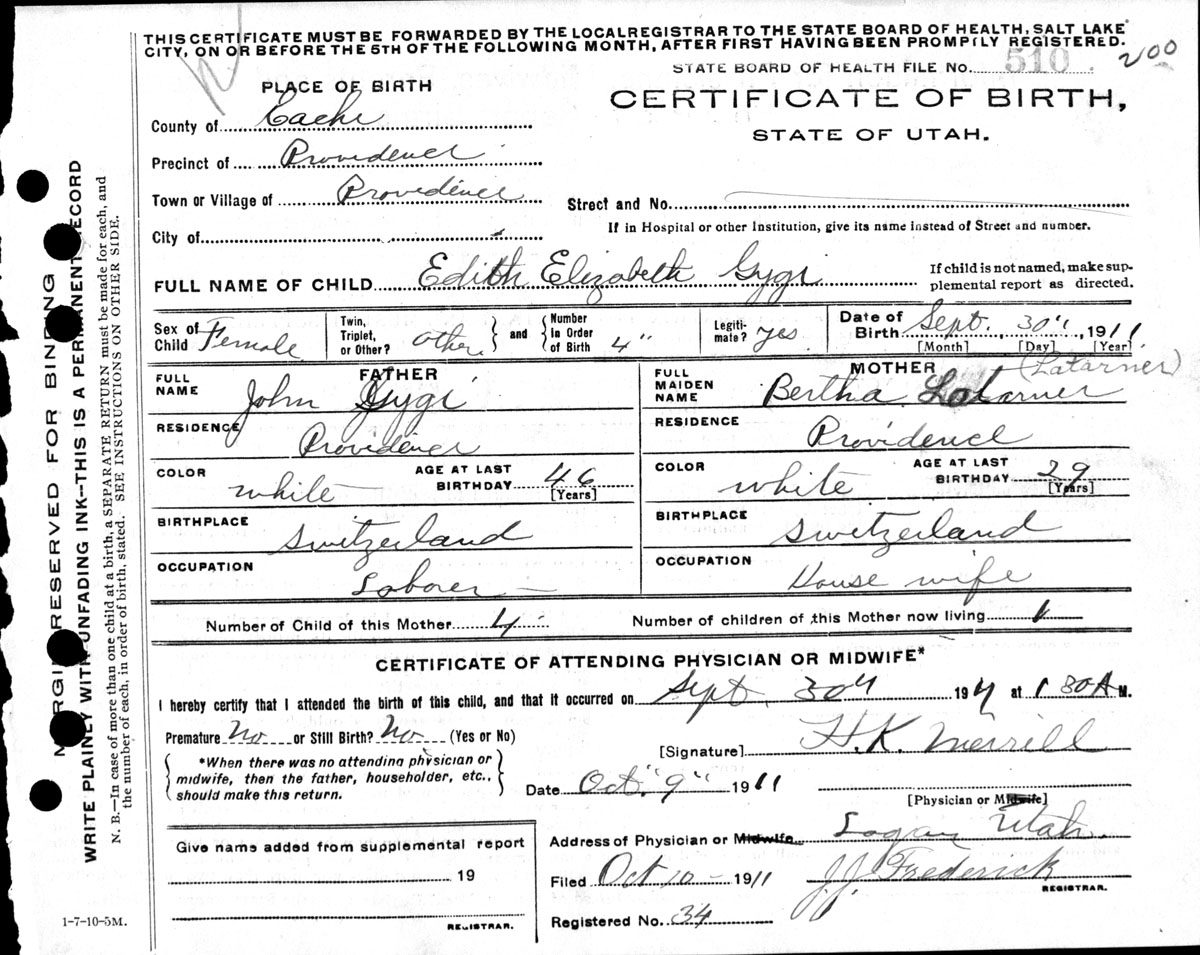 THIS CERTIFICATE MUST BE FORWARDED BY THE LOCALREGISTRAR TO THE STATE BOARD OF HEALTH, SALT LAKE
CITY, ON OR BEFORE THE 5TH OF THE FOLLOWING MONTH, AFTER FIRST HAVING BEEN PROMPTLY REGISTERED.
STATE BOARD OF HEALTH FILE No. 510
200
PLACE OF BIRTH
CERTIFICATE OF BIRTH,
STATE OF UTAH.
County of Cache
Precinct of Providence
Town or Village of Providence
Street and No.
City of
If in Hospital or other Institution, give its name instead of Street and number.
FULL NAME OF CHILD Edith Elizabeth Gygi
If child is not named, make sup-
plemental report as directed.
Sex of Child Female
Twin, Triplet, or Other? other and Number in Order of Birth 4"
Legiti-mate? yes
Date of Birth Sept. 30" 1911
[Month] [Day] [Year]
FATHER
FULL NAME John Gygi
RESIDENCE Providence
COLOR white AGE AT LAST BIRTHDAY 46 [Years]
BIRTHPLACE Switzerland
OCCUPATION Laborer
MOTHER (Latarner)
FULL MAIDEN NAME Bertha Latarner
RESIDENCE Providence
COLOR white AGE AT LAST BIRTHDAY 29 [Years]
BIRTHPLACE Switzerland
OCCUPATION House wife
Number of Child of this Mother 4 Number of children of this Mother now living
CERTIFICATE OF ATTENDING PHYSICIAN OR MIDWIFE*
I hereby certify that I attended the birth of this child, and that it occurred on Sept. 30" 191 at 1 30 A M.
Premature No or Still Birth? No (Yes or No)
[Signature] H.K. Merrill
*When there was no attending physician or
midwife, then the father, householder, etc.,
should make this return.
Date Oct. "9" 1911
[Physician or Midwife]
Give name added from supplemental report
19
REGISTRAR.
Address of Physician or Midwife Logan Utah.
Filed Oct 10 - 1911 J.J. Frederick
REGISTRAR.
Registered No. 34
1-7-10-5M.
MARGIN RESERVED FOR BINDING
WRITE PLAINLY WITH UNFADING INK--THIS IS A PERMANENT RECORD
N. B.—In case of more than one child at a birth, a SEPARATE RETURN must be made for each, and
the number of each, in order of birth, stated. SEE INSTRUCTIONS ON OTHER SIDE.